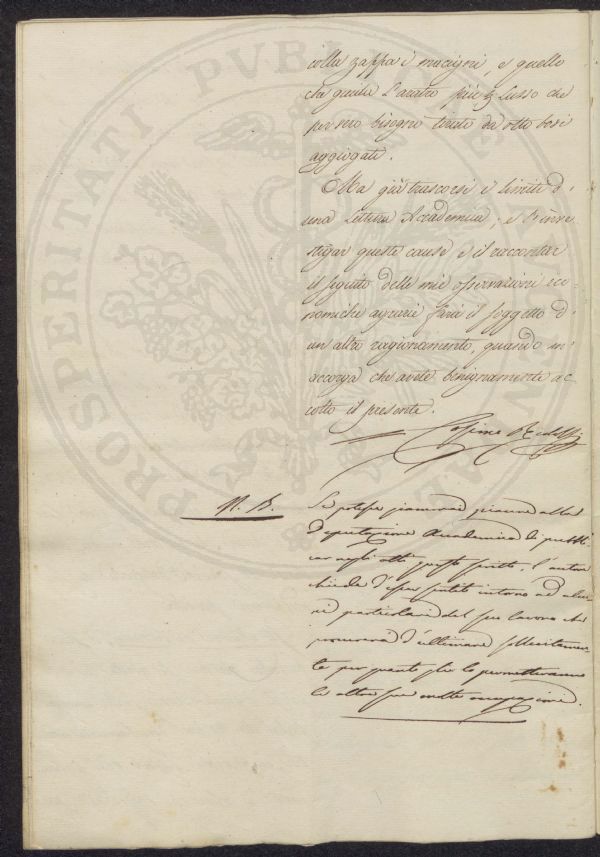 colla zappa i macigni, e quello
che guida l'aratro più p. lusso che
per vero bisogno tirato da otto bovi
aggiogati.
Ma già trascorsi i limiti d'
una Lettura Accademica; e l'inve
stigar queste cause e il raccontar
il seguito delle mie osservazioni eco-
nomiche agrarie farà il soggetto d'
un altro ragionamento, quando m'
accorga che avete benignamente ac
colto il presente.
Cosimo Ridolfi
N. B.
Se potesse giammai piacere alla
Deputazione Accademica di pubbli
car negli atti questo scritto, l'autore
chiede d'esser sentito intorno ad alcu
ni particolari del suo lavoro che
procurerà d'ultimare sollecitamen
te per quanto glie lo permetteranno
le altre sue molte occupazioni.
PROSPERITATI PVBLICAE